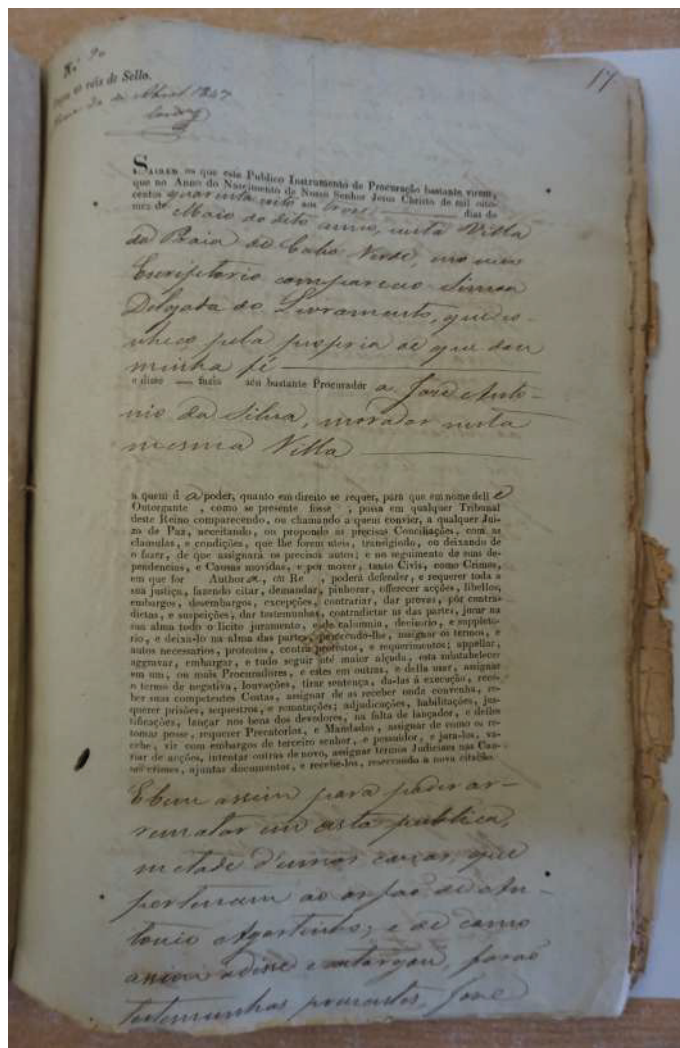 N.º 90
17
reis de Sello.
de Abril 1847
SAIBÃO os que este Publico Instrumento de Procuração bastante virem,
que no Anno do Nascimento de Nosso Senhor Jesus Christo de mil oito-
centos quarenta e oito aos treze dias do
mez de Maio do dito anno, nesta Villa
da Praia de Cabo Verde, no meu
Escriptorio compareceo Simoa
Delgada do Livramento, que co-
nheço pela propria de que dou
minha fé
e disse fazia seu bastante Procurador a José Anto-
nio da Silva, morador nesta
mesma Villa
a quem d a poder, quanto em direito se requer, para que em nome dell e
Outorgante , como se presente fosse , possa em qualquer Tribunal
deste Reino comparecendo, ou chamando a quem convier, a qualquer Jui-
zo de Paz, acceitando, ou propondo as precisas Conciliações, com as
clausulas, e condições, que lhe forem uteis, transigindo, ou deixando de
o fazer, de que assignará os precisos autos; e no seguimento de suas de-
pendencias, e Causas movidas, e por mover, tanto Civis, como Crimes,
em que for Author a, ou Re , poderá defender, e requerer toda a
sua justiça, fazendo citar, demandar, pinhorar, offerecer acções, libellos,
embargos, desembargos, excepções, contrariar, dar provas, pôr contra-
dictas, e suspeições, dar testemunhas, contradictar as das partes, jurar na
sua alma todo o licito juramento, e de calumnia, decisorio, e suppleto-
rio, e deixa-lo na alma das partes, parecendo-lhe, assignar os termos, e
autos necessarios, protestos, contra protestos, e requerimentos; appellar,
aggravar, embargar, e tudo seguir até maior alçada, esta substabelecer
em um, ou mais Procuradores, e estes em outros, e della usar, assignar
o termo de negativa, louvações, tirar sentença, da-las á execução, rece-
ber suas competentes Custas, assignar de as receber onde convenha, re-
querer prisões, sequestros, e rematações; adjudicações, habilitações, jus-
tificações, lançar nos bens dos devedores, na falta de lançador, e delles
tomar posse, requerer Precatorios, e Mandados, assignar de como os re-
cebe, vir com embargos de terceiro senhor, e possuidor, e jura-los, va-
riar de acções, intentar outras de novo, assignar termos Judiciaes nas Cau-
sas crimes, ajuntar documentos, e recebe-los, reservando a nova citação
E bem assim para poder ar-
rematar em asta publica,
metade d'umas cazas, que
pertencem ao orfaõ de An-
tonio Agostinho; e de como
assim o disse e outorgou, foraõ
testemunhas prezentes, José